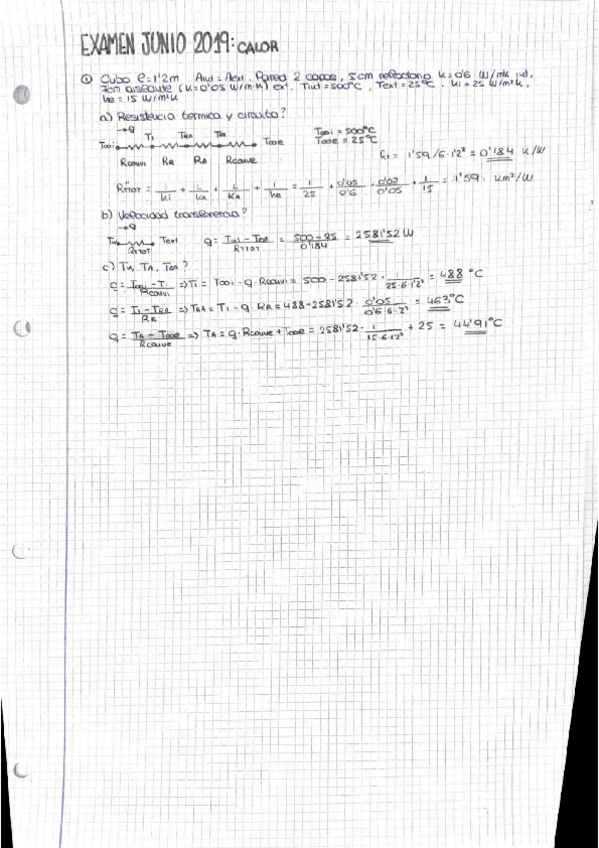 EXAMEN JUNIO 2019: CALOR
① Cubo l=1'2m Aint = Aext. Pared 2 capas, 5cm refractario K=0'6 W/mK int,
7cm aislante (K=0'05 W/m·K) ext. Tint=500°C, Text=25°C. hi=25 W/m²K,
he=15 W/m²K
a) Resistencia térmica y circuito?
→q
T∞i T1 TRA TA T∞e
T∞i = 500°C
T∞e = 25°C
Rconvi RR RA Rconve
Rt = 1'59/6·1'2² = 0'184 K/W
R"TOT = 1/hi + L/KR + L/KA + 1/he = 1/25 + 0'05/0'6 + 0'07/0'05 + 1/15 = 1'59 Km²/W
b) Velocidad transferencia?
→q
Tint RTOT Text
q = Tint - Text / RTOT = 500-25 / 0'184 = 2581'52 W
c) T1, TA, TRA?
q = T∞i - T1 / Rconvi => T1 = T∞i - q·Rconvi = 500 - 2581'52 · 1/25·6·1'2² = 488 °C
q = T1 - TRA / RR => TRA = T1 - q·RR = 488 - 2581'52 · 0'05/0'6·6·1'2² = 463°C
q = TA - T∞e / Rconve => TA = q·Rconve + T∞e = 2581'52 · 1/15·6·1'2² + 25 = 44'91°C